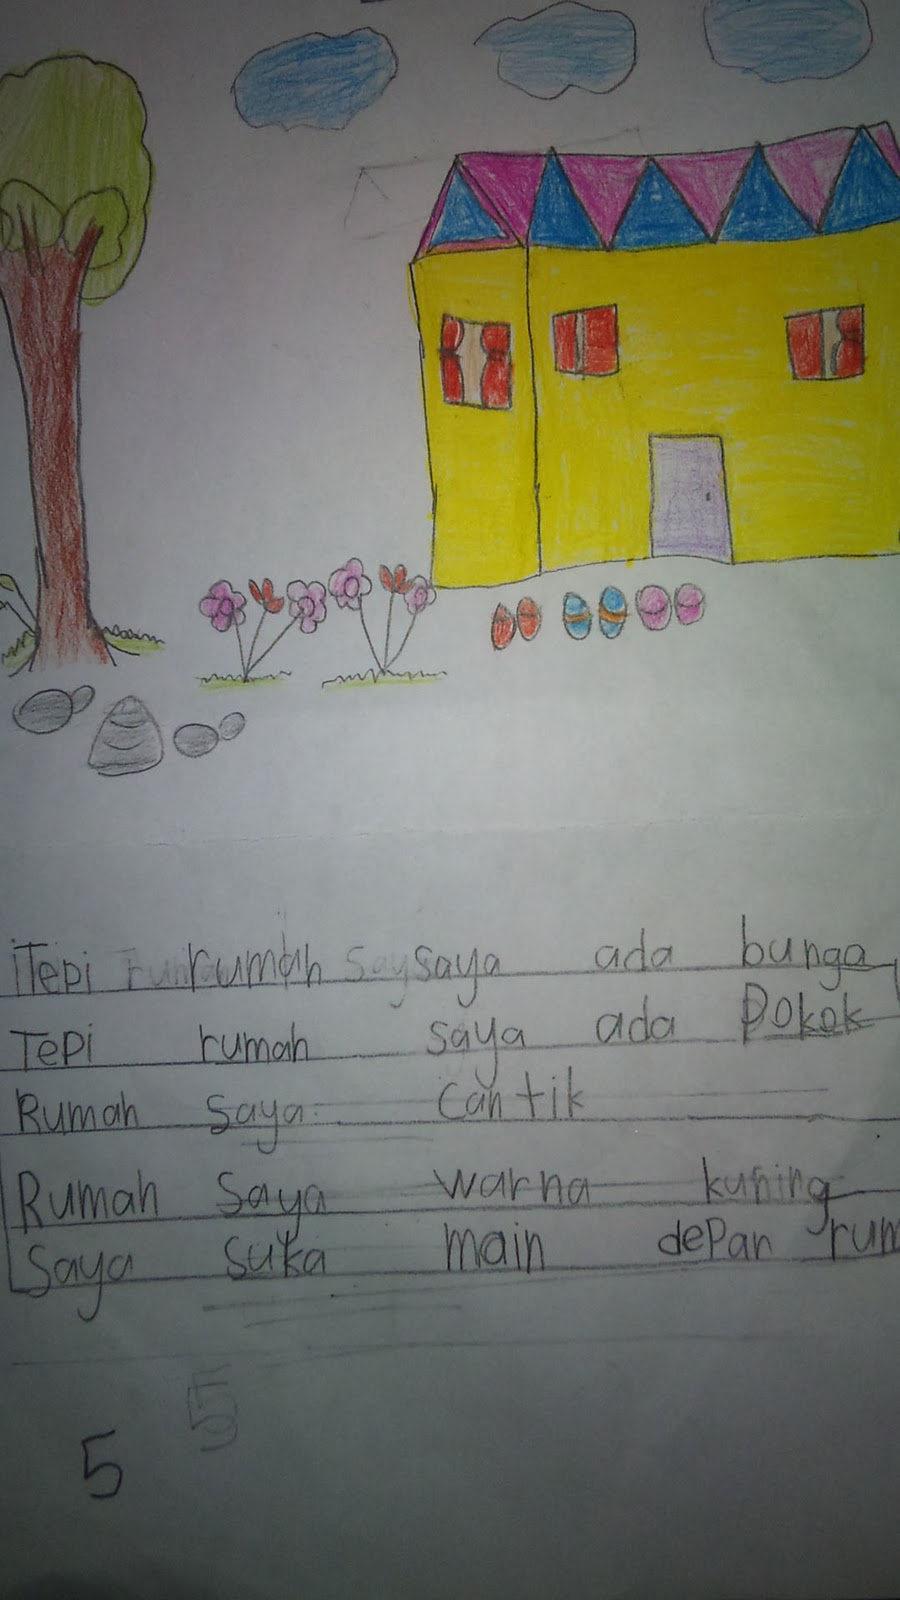 Tepi rumah saya ada bunga
Tepi rumah saya ada Pokok
Rumah saya cantik
Rumah saya warna kuning
Saya suka main depan rum
5
5